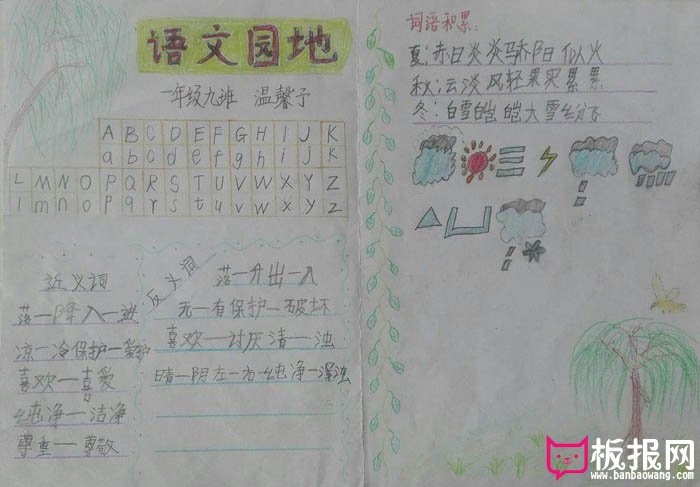 语文园地
一年级九班 温馨予
A B C D E F G H I J K
a b c d e f g h i j k
L M N O P Q R S T U V W X Y Z
l m n o p q r s t u v w x y z
近义词
落一降入一进
凉一冷保护一爱护
喜欢一喜爱
纯净一洁净
尊重一尊敬
反义词
落一升出一入
无一有保护一破坏
喜欢一讨厌清一浊
晴一阴左一右纯净一浑浊
词语积累:
夏:赤日炎炎骄阳似火
秋:云淡风轻果实累累
冬:白雪皑皑大雪纷飞
板报网
www.banbaowang.com